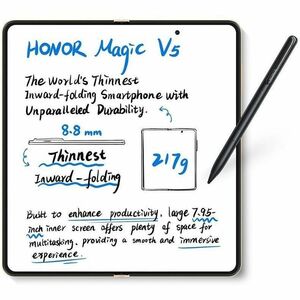 HONOR Magic V5
The World's Thinnest
Inward-folding Smartphone with
Unparalleled Durability.
8.8 mm
Thinnest
Inward-folding
217g
Built to enhance productivity, large 7.95-
inch inner screen offers plenty of space for
multitasking, providing a smooth and immersive
experience.